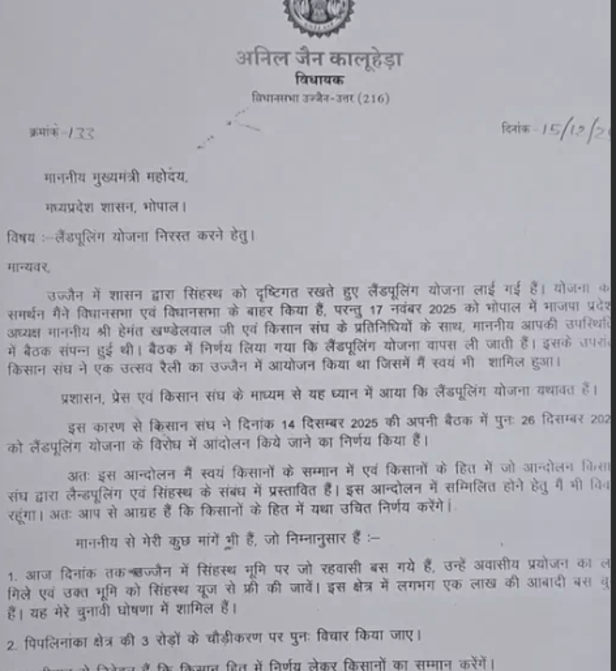 अनिल जैन कालूहेड़ा
विधायक
विधानसभा उज्जैन-उत्तर (216)
क्रमांक-133
दिनांक-15/12/2
माननीय मुख्यमंत्री महोदय,
मध्यप्रदेश शासन, भोपाल।
विषय :-लैंडपूलिंग योजना निरस्त करने हेतु।
मान्यवर,
उज्जैन में शासन द्वारा सिंहस्थ को दृष्टिगत रखते हुए लैंडपूलिंग योजना लाई गई हैं। योजना क
समर्थन मैने विधानसभा एवं विधानसभा के बाहर किया हैं, परन्तु 17 नवंबर 2025 को भोपाल में भाजपा प्रदेश
अध्यक्ष माननीय श्री हेमंत खण्डेलवाल जी एवं किसान संघ के प्रतिनिधियों के साथ, माननीय आपकी उपस्थिति
में बैठक संपन्न हुई थी। बैठक में निर्णय लिया गया कि लैंडपूलिंग योजना वापस ली जाती हैं। इसके
किसान संघ ने एक उत्सव रैली का उज्जैन में आयोजन किया था जिसमें मैं स्वयं भी शामिल हुआ।
प्रशासन, प्रेस एवं किसान संघ के माध्यम से यह ध्यान में आया कि लैंडपूलिंग योजना यथावत हैं।
इस कारण से किसान संघ ने दिनांक 14 दिसम्बर 2025 की अपनी बैठक में पुनः 26 दिसम्बर 202
को लैंडपूलिंग योजना के विरोध में आंदोलन किये जाने का निर्णय किया हैं।
अतः इस आन्दोलन मैं स्वयं किसानों के सम्मान में एवं किसानों के हित में जो आन्दोलन किसा
संघ द्वारा लैन्डपूलिंग एवं सिंहस्थ के संबंध में प्रस्तावित हैं। इस आन्दोलन में सम्मिलित होने हेतु मैं भी विव
रहूंगा। अतः आप से आग्रह हैं कि किसानों के हित में यथा उचित निर्णय करेंगे।
माननीय से मेरी कुछ मांगें भी हैं, जो निम्नानुसार हैं :–
1. आज दिनांक तक उज्जैन में सिंहस्थ भूमि पर जो रहवासी बस गये हैं, उन्हें अवासीय प्रयोजन का ल
मिले एवं उक्त भूमि को सिंहस्थ यूज से फ्री की जावें। इस क्षेत्र में लगभग एक लाख की आबादी बस चु
हैं। यह मेरे चुनावी घोषणा में शामिल हैं।
2. पिपलिनाका क्षेत्र की 3 रोड़ों के चौड़ीकरण पर पुनः विचार किया जाए।
निवेदन हैं कि किसान हित में निर्णय लेकर किसानों का सम्मान करेंगें।